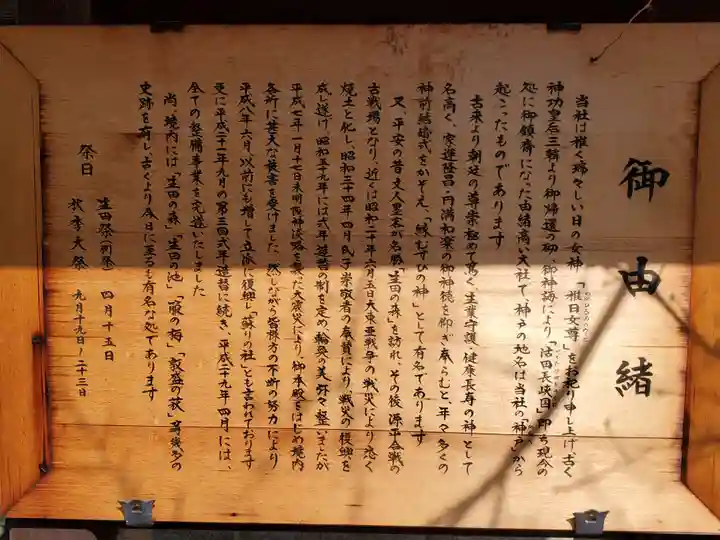 御由緒
当社は稚く瑞々しい日の女神「稚日女尊」をお祀り申し上げ、古く
神功皇后三韓より御帰還の砌、御神誨により「活田長峡国」即ち現今の
処に御鎮齋になった由緒高い大社で、神戸の地名は当社の「神戸」から
起こったものであります
古来より朝廷の尊崇極めて篤く、生業守護、健康長寿の神として
名高く、家運隆昌・円満和楽の御神徳を仰ぎ奉らむと、年々多くの
神前結婚式をかぞえ、「縁むすびの神」として有名であります
又、平安の昔文人墨客が名勝「生田の森」を訪れ、その後源平合戦の
古戦場となり、近くは昭和二十年六月五日大東亜戦争の戦災により悉く
焼土と化し、昭和三十四年四月氏子崇敬者の奉賛により戦災の復興を
成し遂げ、昭和五十九年には式年造替の制を定め、輪奐の美弥々整いましたが
平成七年一月十七日未明阪神淡路を襲った大震災により、御本殿をはじめ境内
各所に甚大な被害を受けました、然しながら皆様方の不断の努力により
平成八年六月、以前にも増して立派に復興し「蘇りの社」とも言われております
更に平成二十一年九月の第三回式年造替に続き、平成二十九年四月には、
全ての整備事業を完遂いたしました
尚、境内には、「生田の森」「生田の池」「箙の梅」「敦盛の萩」等幾多の
史跡を有し、古くより今日に至るも有名な処であります
祭日
生田祭（例祭）四月十五日
秋季大祭 九月十九日～二十三日